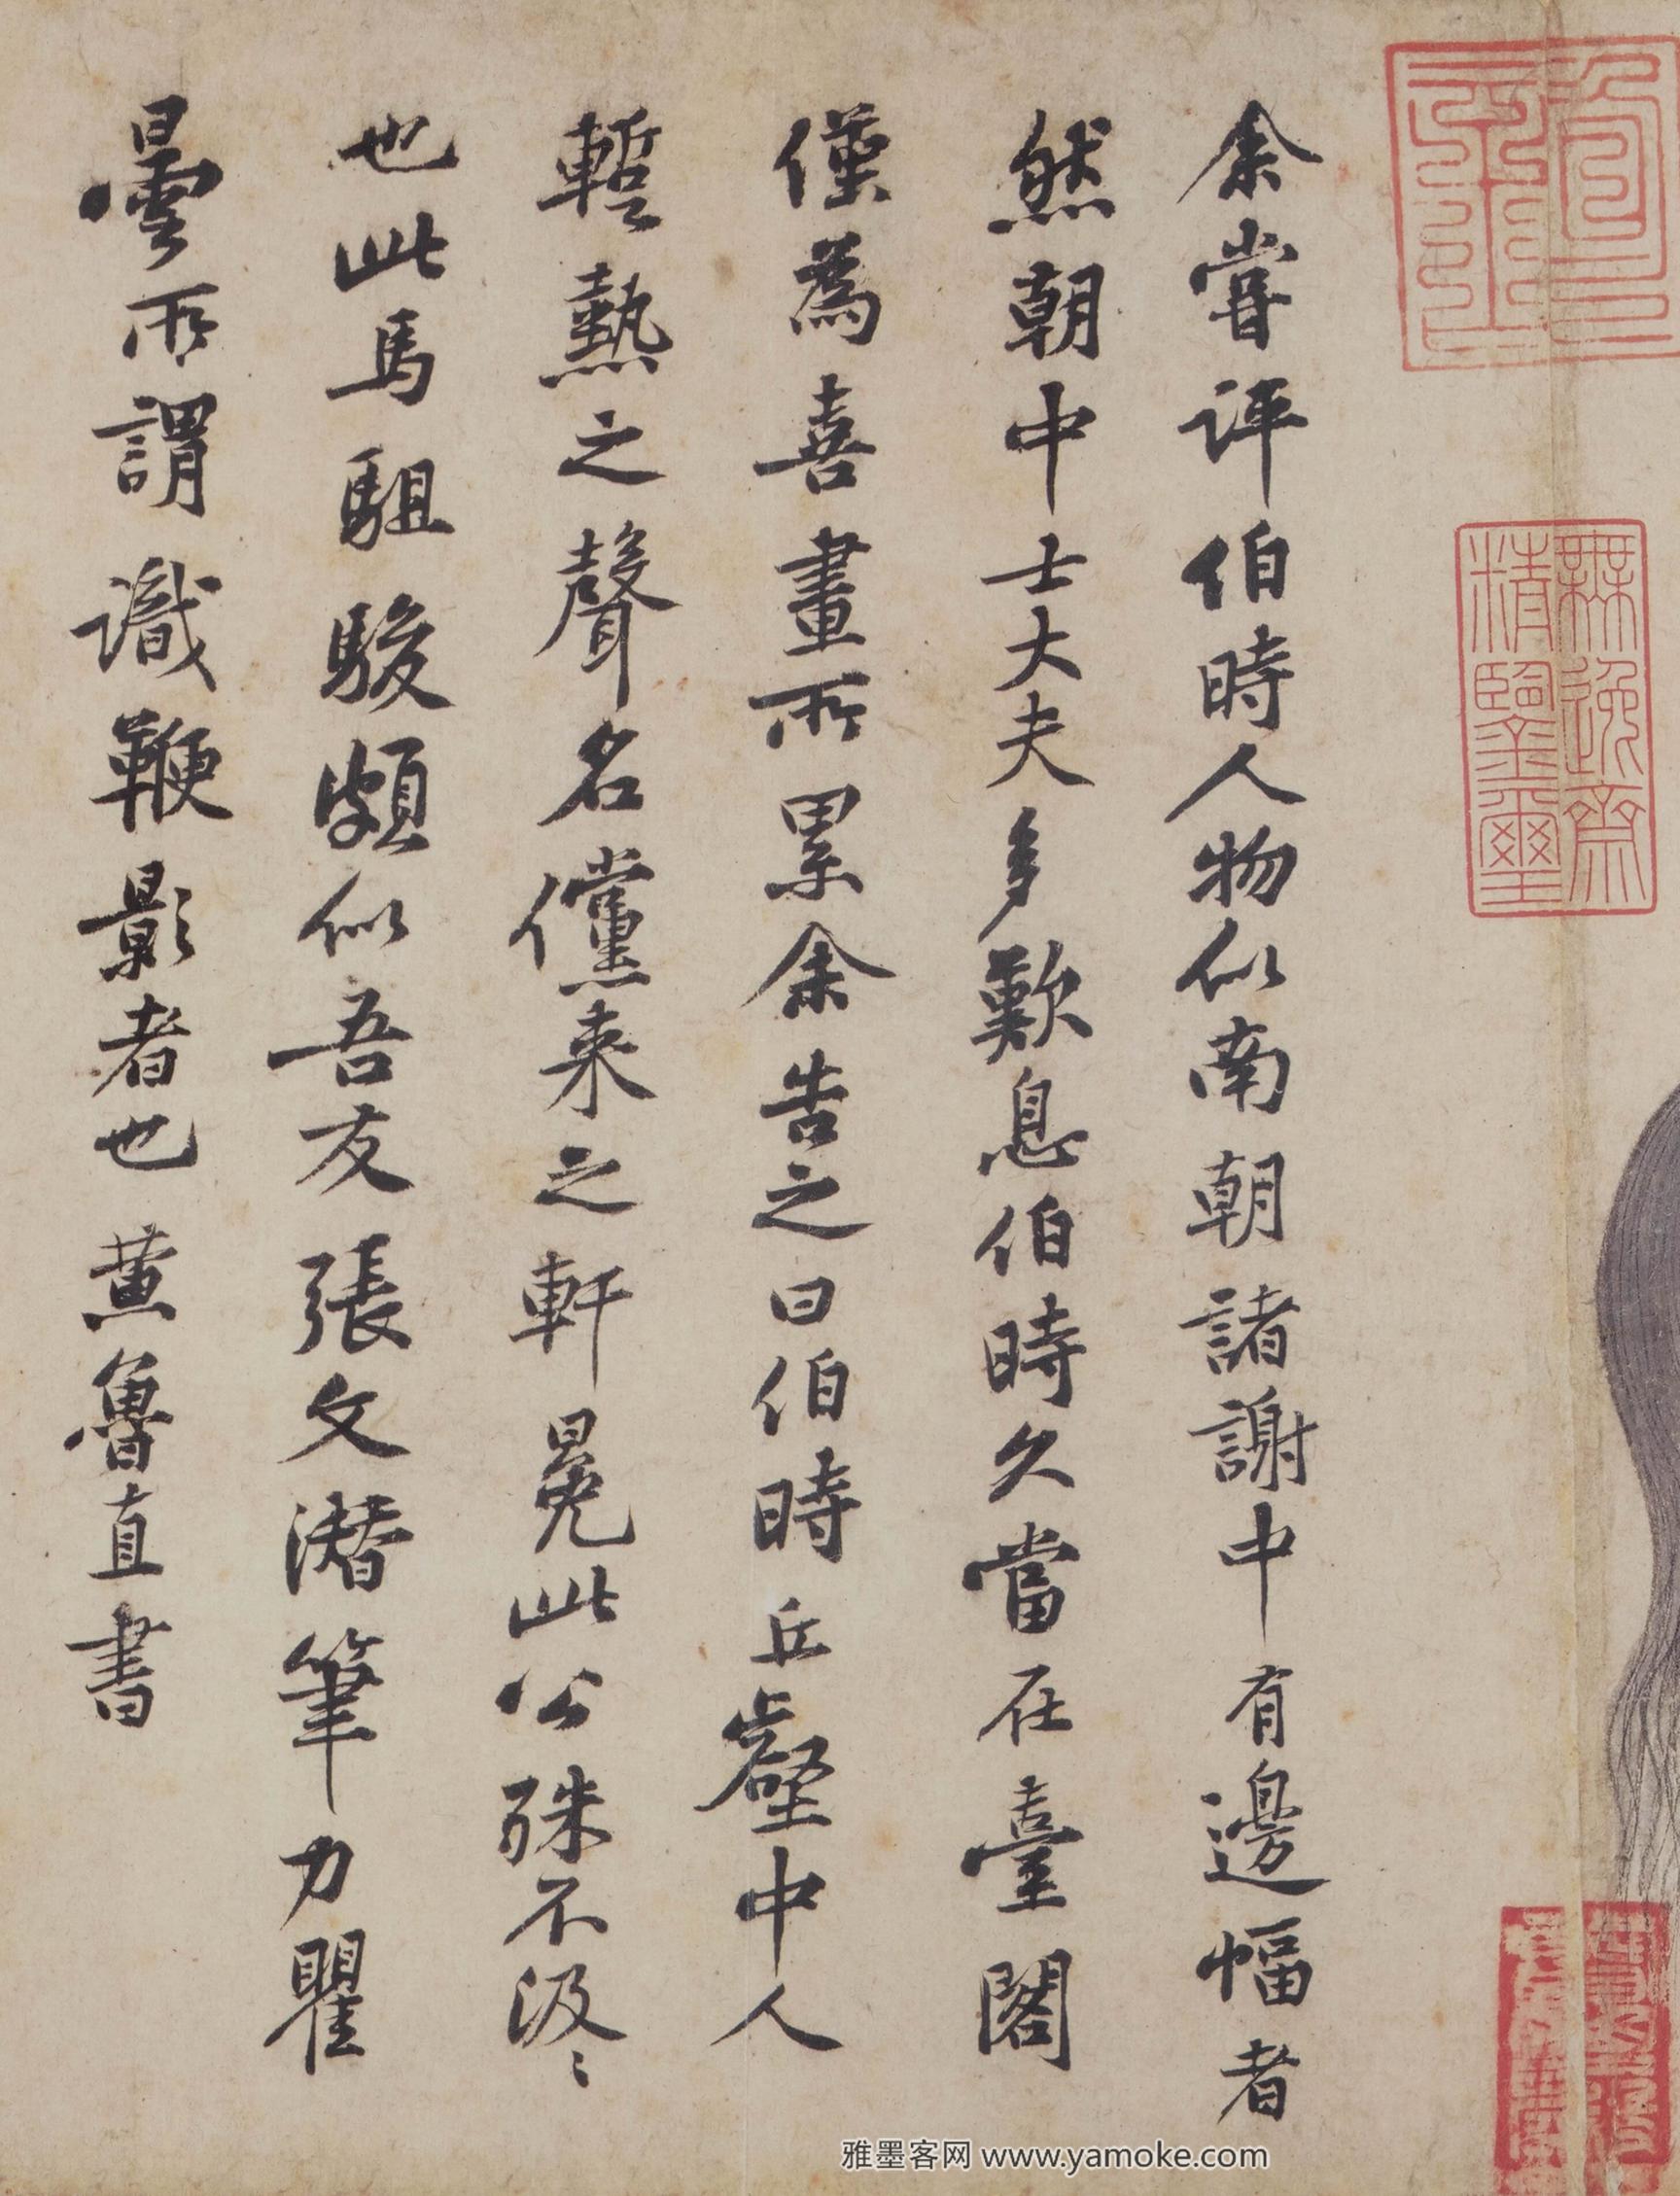 余嘗評伯時人物似南朝諸謝中有邊幅者
然朝中士大夫多歎息伯時久當在臺閣
僅為喜畫所累余告之曰伯時丘壑中人
暫熱之聲名儻来之軒冕此公殊不汲〻
也此馬駔駿頗似吾友張文潜筆力瞿
曇所謂識鞭影者也黃魯直書
無逸齋
精鑒璽
雅墨客网 www.yamoke.com